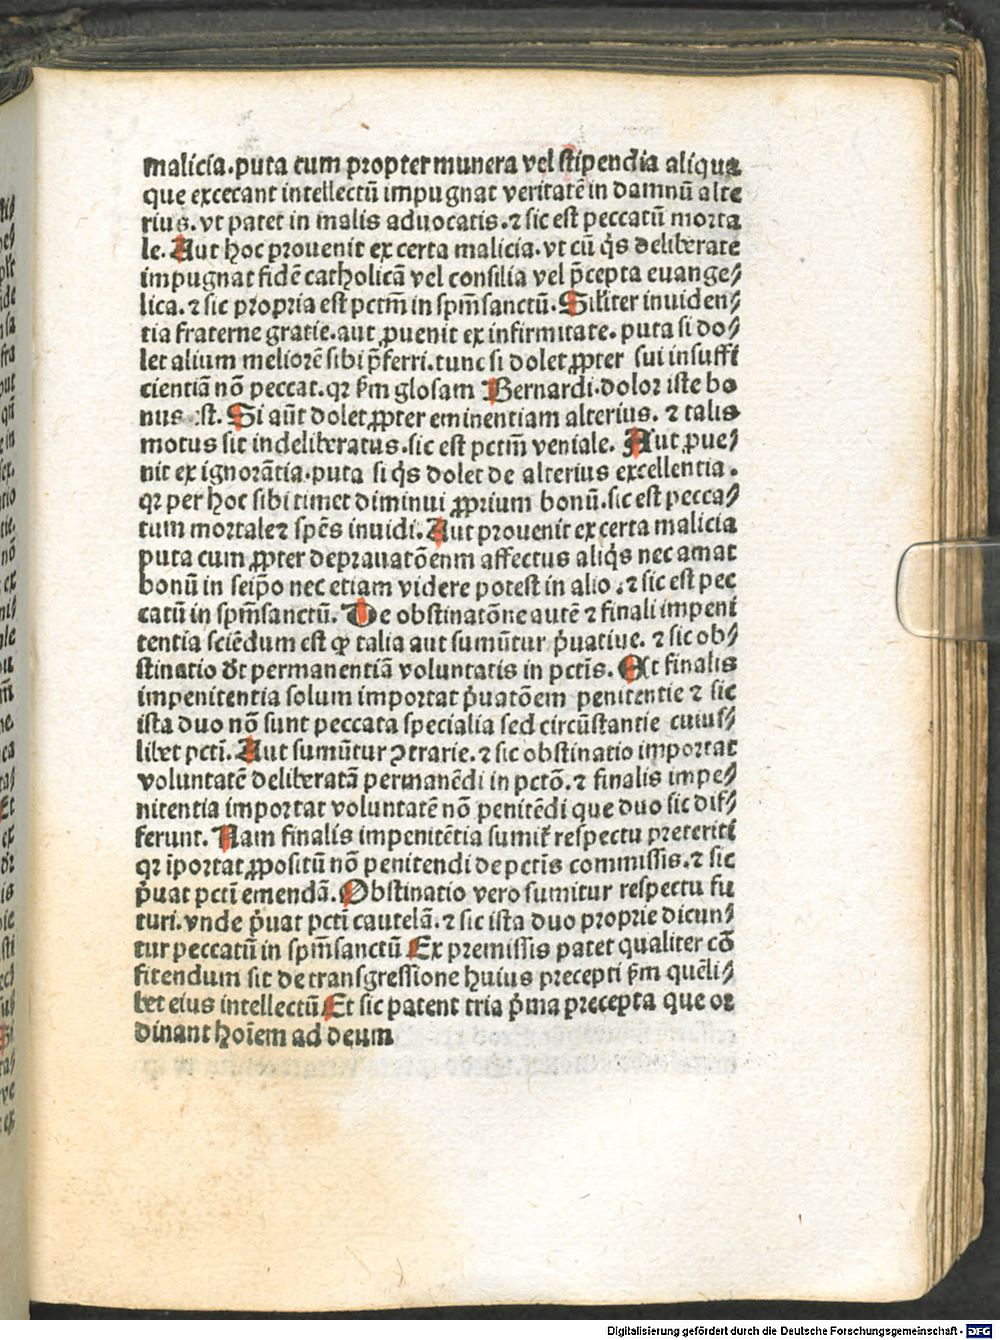 malicia.puta cum propter munera vel stipendia aliqua
que excecant intellectū impugnat veritatē in damnū alte
rius. vt patet in malis aduocatis. ⁊ sic est peccatū morta
le. Aut hoc prouenit ex certa malicia. vt cū q̄s deliberate
impugnat fidē catholicā vel consilia vel p̄cepta euange⸗
lica. ⁊ sic propria est pctm̄ in spm̄sanctū. Silīter inuiden⸗
tia fraterne gratie. aut ꝓuenit ex infirmitate. puta si do⸗
let alium meliorē sibi p̄ferri. tunc si dolet ꝓpter sui insuffi
cientiā nō peccat. qꝛ ẜm glosam Bernardi. dolor iste bo
nus est. Si aūt dolet ꝓpter eminentiam alterius. ⁊ talis
motus sit indeliberatus. sic est pctm̄ veniale. Aut ꝓue⸗
nit ex ignorātia. puta si q̄s dolet de alterius excellentia.
qꝛ per hoc sibi timet diminui ꝓprium bonū. sic est pecca⸗
tum mortale ⁊ spēs inuidi. Aut prouenit ex certa malicia
puta cum ꝓpter deprauatōenm affectus aliq̄s nec amat
bonū in seip̄o nec etiam videre potest in alio. ⁊ sic est pec
catū in spm̄sanctū. De obstinatōne autē ⁊ finali impeni
tentia sciēdum est ꝙ talia aut sumūtur p̍uatiue. ⁊ sic ob⸗
stinatio dr̄t permanentiā voluntatis in pctīs. Et finalis
impenitentia solum importat p̍uatōem penitentie ⁊ sic
ista duo nō sunt peccata specialia sed circūstantie cuius⸗
libet pctī. Aut sumūtur ↄtrarie. ⁊ sic obstinatio importat
voluntatē deliberatā permanēdi in pctō. ⁊ finalis impe⸗
nitentia importat voluntatē nō penitēdi que duo sic dif⸗
ferunt. Nam finalis impenitētia sumit᷑ respectu preteriti
qꝛ īportat ꝓpositū nō penitendi de pctīs commissis. ⁊ sic
p̍uat pctī emendā. Obstinatio vero sumitur respectu fu
turi. vnde p̍uat pctī cautelā. ⁊ sic ista duo proprie dicun⸗
tur peccatū in spm̄sanctū Ex premissis patet qualiter cō
fitendum sit de transgressione huius precepti ẜm quēli⸗
bet eius intellectū Et sic patent tria p̍ma precepta que or
dinant hoīem ad deum
Digitalisierung gefördert durch die Deutsche Forschungsgemeinschaft - DFG